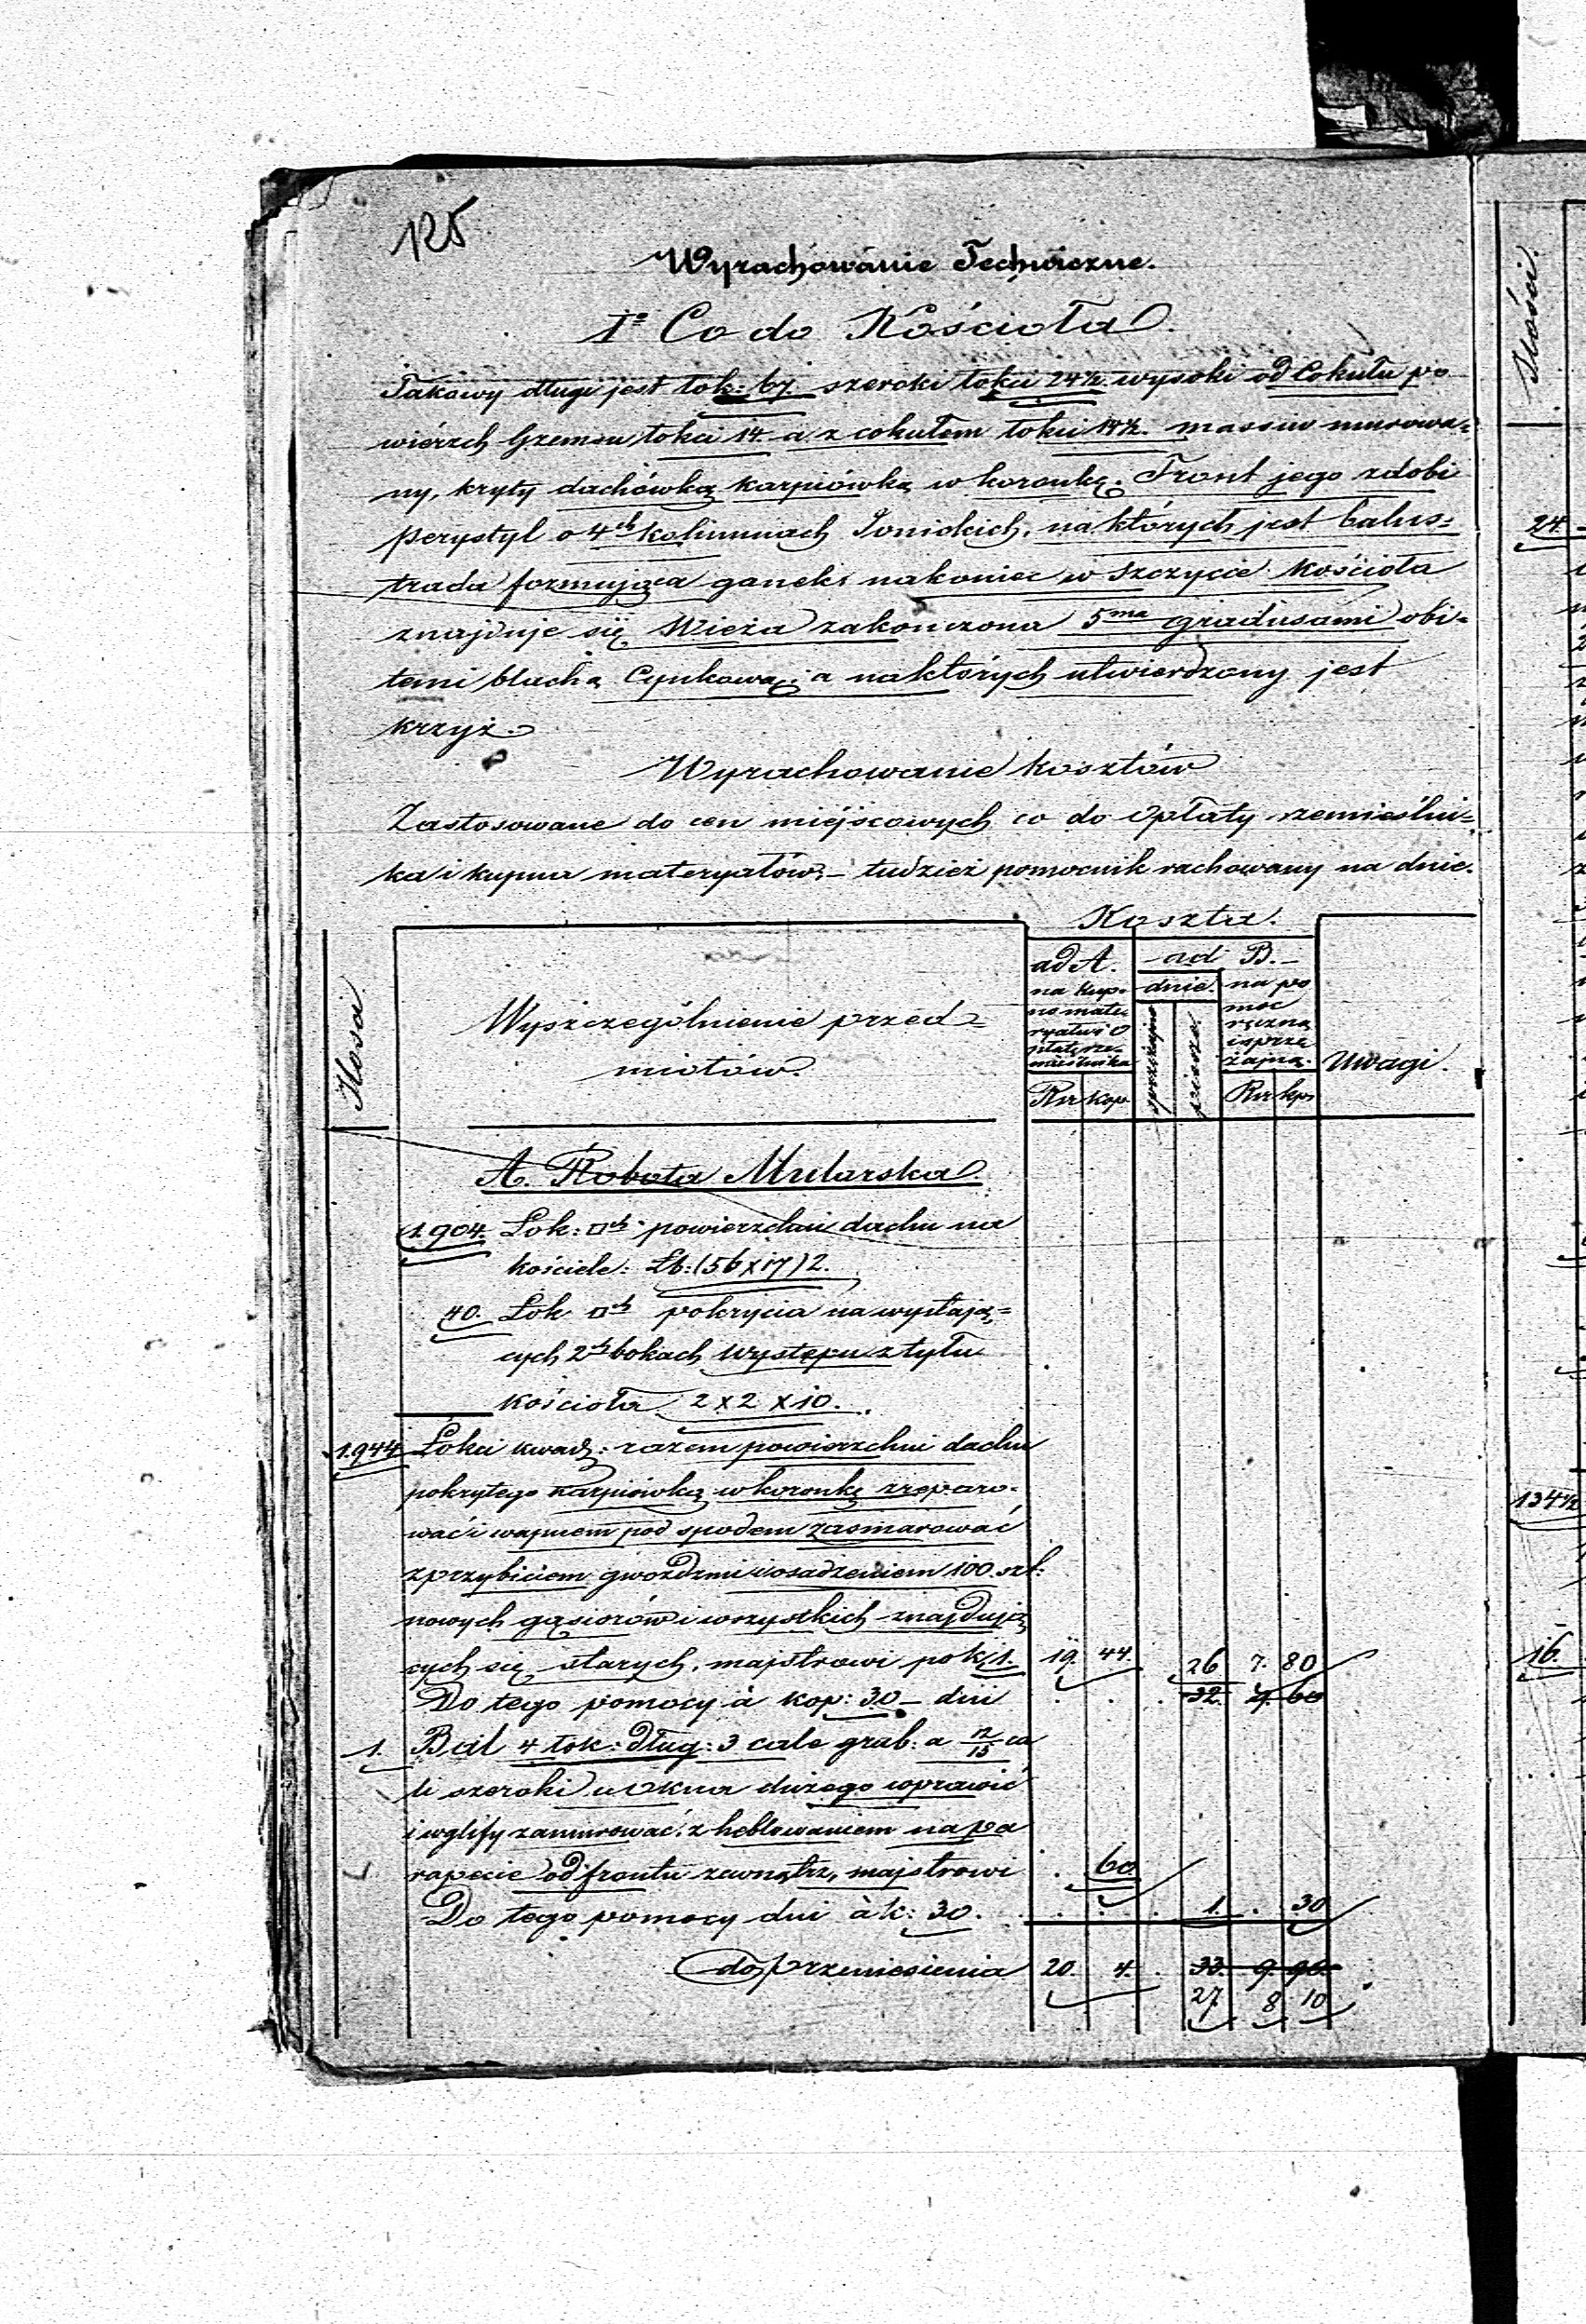 125
Wyrachowanie Techniczne.
1º Co do Kościoła.
Takowy długi jest łok: 67. szeroki łokci 24½ wysoki od Cokułu po
wiérzch Gzemsu łokci 14. a z cokułem łokci 14½. massiw murowa=
ny, kryty dachówką karpiówką w koronkę. Front jego zdobi
perystyl o 4ch kolumnach Jonickich, na których jest balus=
trada formująca ganek, nakoniec w szczycie kościoła
znajduje się Wieża zakończona 5ma gradusami obi=
temi blachą Cynkową; a na których utwierdzony jest
krzyż.
Wyrachowanie kosztów
Zastosowane do cen miéjscowych co do Opłaty rzemieślni=
ka i kupna materyałów, – tudzież pomocnik rachowany na dnie.
Ilość
Wyszczególnienie przed=
miotów.
Koszta.
ad A.
na kup-
no mate
ryałów i O
płatę rze-
mieślnika
Rsr kop
ad B. –
dnie.
sprzężajne
piesze
na po
moc
ręczną
i sprzę
żajną.
Rsr kp.
Uwagi.
A. Robota Mularska.
1.904. Łok: □ch powierzchni dachu na
kościele: Łb: (56 x 17) 2.
40. Łok □ch pokrycia na wystają=
cych 2ch bokach Występu z tyłu
kościoła 2 x 2 x 10.
1.944 Łokci kwad: razem powierzchni dachu
pokrytego karpiówką w koronkę zreparo-
wać i wapnem pod spodem zasmarować
z przybiciem gwoździmi i osadzeniem 100. szt:
nowych gąsiorów i wszystkich znajdują
cych się starych, majstrowi po k. 1. 19. 44. 26 7. 80
Do tego pomocy à kop: 30 – dni 32. 9. 60
1. Bal 4 łok: dług: 3 cale grub: a 12/15 ca
li szeroki u okna dużego wprawić
i wglify zamurować, z heblowaniem na pa
rapecie od frontu zewnątrz, majstrowi 60
Do tego pomocy dni à k: 30. 1. 30
do przeniesienia 20. 4. 33. 9. 90.
27 8 10
Ilości.
24.
134½
16.